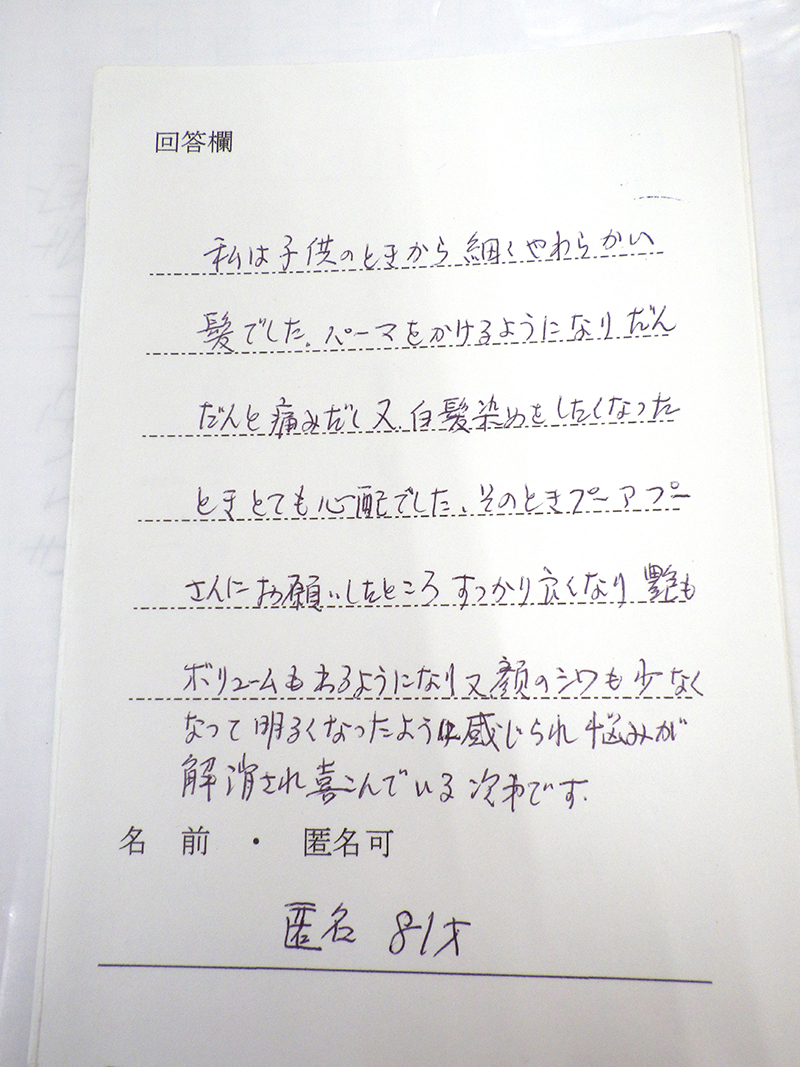 回答欄
私は子供のときから細くやわらかい
髪でした。パーマをかけるようになりだん
だんと痛みだし又、白髪染めをしたくなった
ときとても心配でした、そのときプーアプー
さんにお願いしたところすっかり良くなり艶も
ボリュームもわるようになり又顔のシワも少なく
なって明るくなったように感じられ悩みが
解消され喜こんでいる次才です.
名前・匿名可
匿名 81才